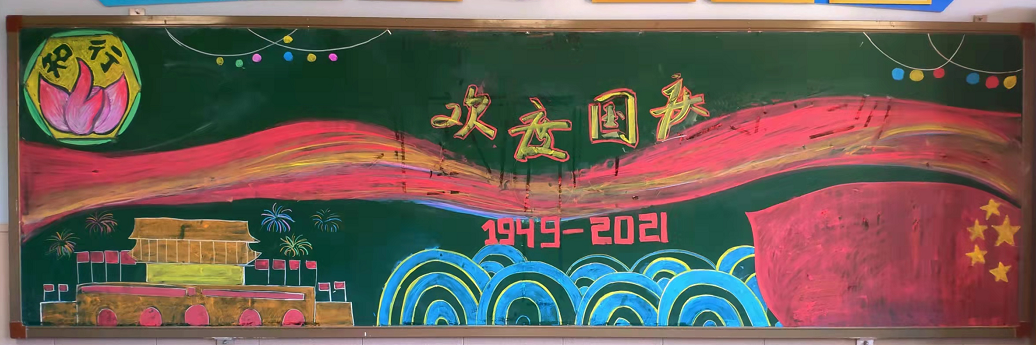 知行
欢度国庆
1949-2021